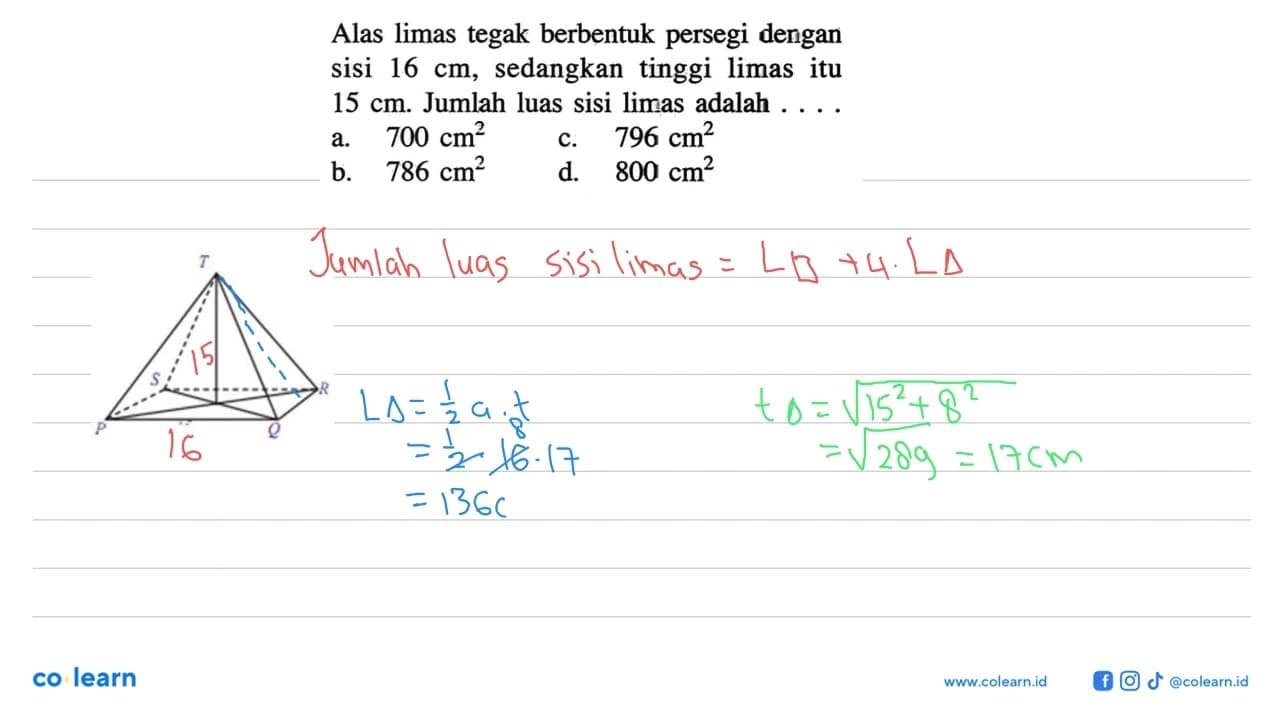 Alas limas tegak berbentuk persegi dengan
sisi 16 cm, sedangkan tinggi limas itu
15 cm. Jumlah luas sisi limas adalah . . . .
a. 700 cm² c. 796 cm²
b. 786 cm² d. 800 cm²
Jumlah luas sisi limas = L□ + 4. L△
T
15
S
R
P
Q
16
L△ = 1/2 a . t
= 1/2 . 16 . 17
8
= 136c
t△ = √15² + 8²
= √289 = 17 cm
co learn
www.colearn.id
@colearn.id